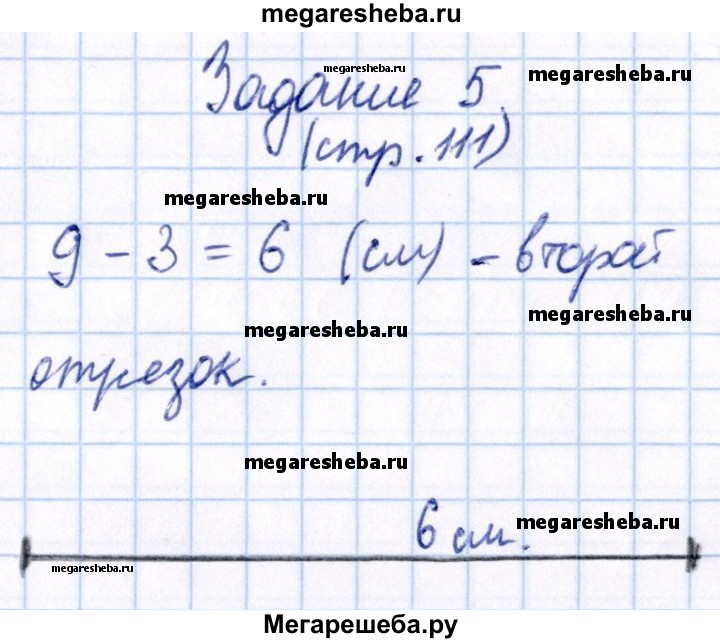 megaresheba.ru
megaresheba.ru
megaresheba.ru
Задание 5.
(стр. 111)
megaresheba.ru
9 - 3 = 6 (см) - второй
megaresheba.ru
megaresheba.ru
отрезок.
megaresheba.ru
6 см.
megaresheba.ru
megaresheba.ru
Мегарешеба.ру